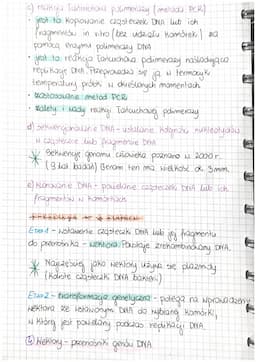 c) reakcja łańcuchowa polimerazy (metoda PCR)
• jest to kopiowanie cząsteczek DNA lub ich
fragmentów in vitro (bez udziału komórek) za
pomocą enzymu polimerazy DNA
• jest to reakcja łańcuchowa polimerazy naśladująca
replikację DNA. Przeprowadza się ją w termocyk
temperatury próbki w określonych momentach
• zastosowanie metod PCR
• zalety i wady reakcji łańcuchowej polimerazy
d) sekwencjonowanie DNA - ustalanie kolejności nukleotydów
w cząsteczce lub fragmencie DNA
* Sekwencję genomu człowieka poznano w 2000 r.
(9 lat badań) Genom ten ma wielkość ok. 3mm.
e) klonowanie DNA - powielanie cząsteczki DNA lub ich
fragmentów w komórkach
Etap 1 - wstawienie cząsteczki DNA lub jej fragmentu
do przenośnika - wektora. Powstaje zrekombinowany DNA.
* Najczęściej jako wektory używa się plazmidy
(koliste cząsteczki DNA bakterii)
Etap 2 - transformacja genetyczna - polega na wprowadzeniu
wektora ze wstawionym DNA do wybranej komórki,
w której jest powielany podczas replikacji DNA.
Wektory - przenośniki genów DNA